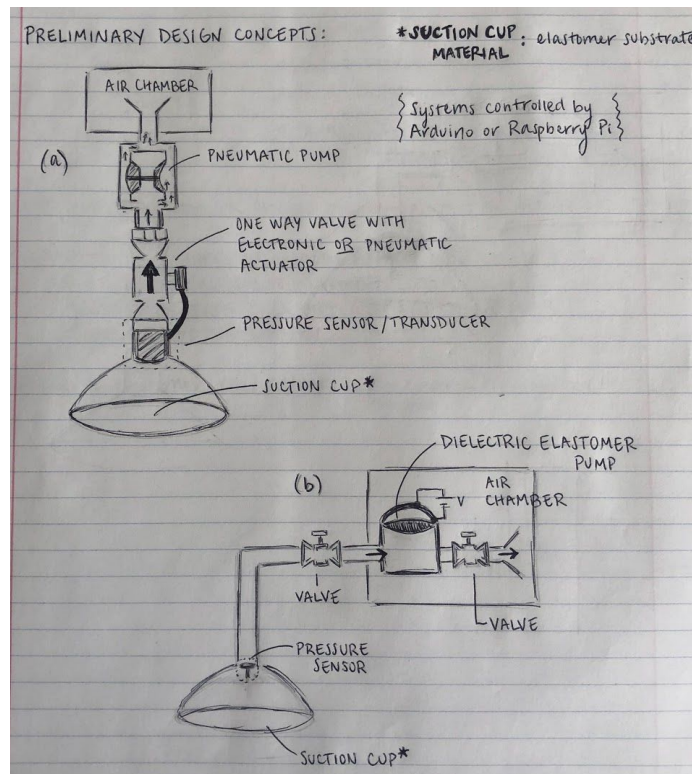 PRELIMINARY DESIGN CONCEPTS:
*SUCTION CUP : elastomer substrate
MATERIAL
Systems controlled by
Arduino or Raspberry Pi
AIR CHAMBER
(a)
PNEUMATIC PUMP
ONE WAY VALVE WITH
ELECTRONIC OR PNEUMATIC
ACTUATOR
PRESSURE SENSOR/TRANSDUCER
SUCTION CUP*
DIELECTRIC ELASTOMER
PUMP
(b)
AIR
CHAMBER
V
VALVE
VALVE
PRESSURE
SENSOR
SUCTION CUP*